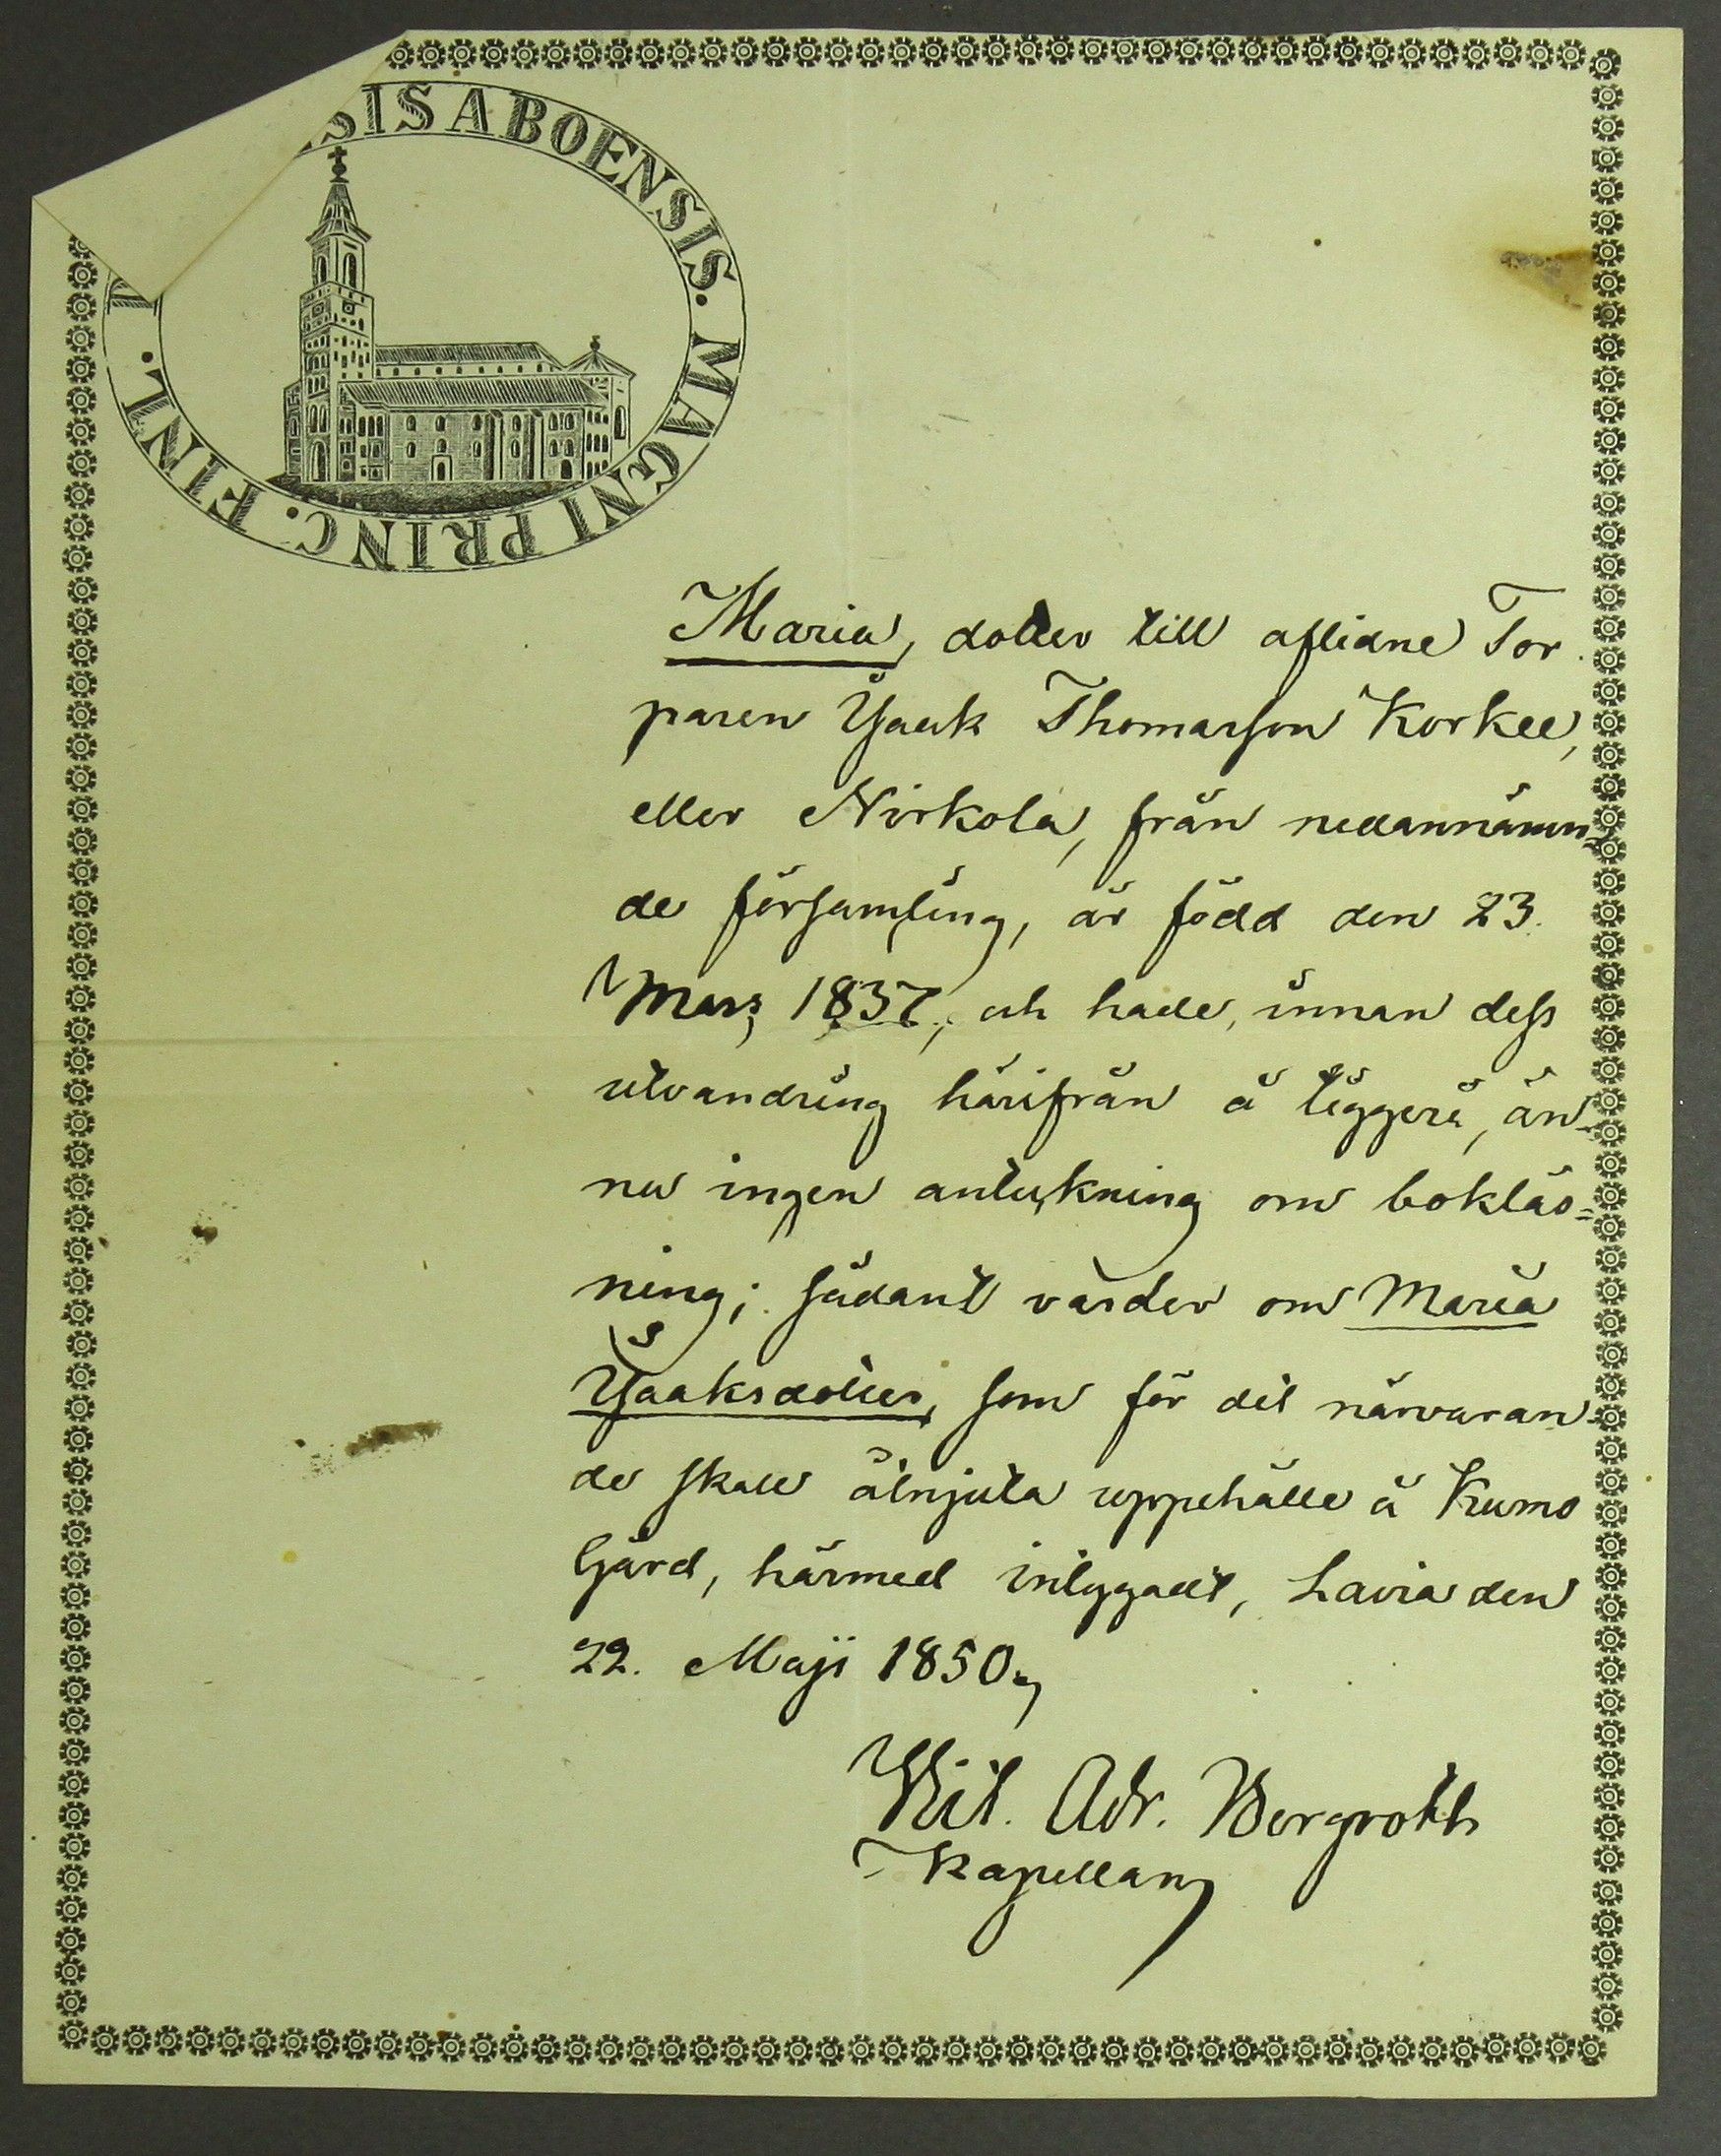 SIS ABOENSIS. MAGNI PRINC. FINL.
Maria, dotter till aflidne Tor
paren Ysaak Thomasson Korkee,
eller Nirkola, från nedannämn=
de församling, är född den 23.
Mars 1837, och hade, innan dess
utvandring härifrån å tiggeri, än-
nu ingen anteckning om bokläs=
ning; sådant varder om Maria
Ysaaksdotter, som för det närvaran-
de skall åtnjuta uppehälle å Kumo
Gård, härmed intygadt, Lavia den
22. Maji 1850,
Vict. Adr. Bergroth
Kapellan